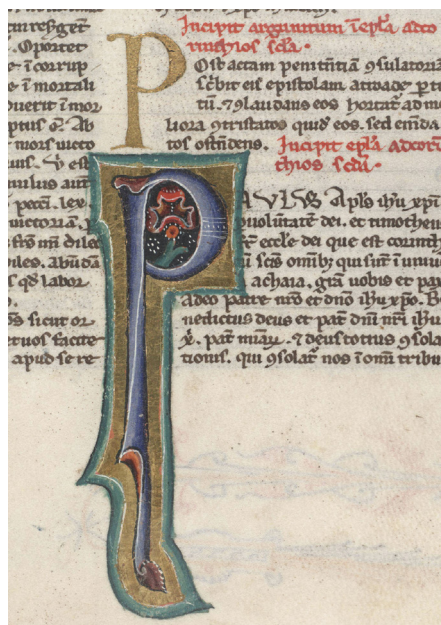 tur resurget
Oportet
e incorrup
e immortali
duerit inmor
ptus est. Ab
mors victo
tuus. Ubi est
mulus aut
peccati. lex.
victoriam
stros mei dilec
biles. abundā
s qd labor
os sicut or
et vos facite
apud se re
Incipit argumtum in epła ad co
rinthios scda.
P
Ost actam penitentiā ɔsolatoriā
scribit eis epistolam a troade p ti
tū. ⁊ ɔlaudans eos hortat ad me
liora ɔtristatos quidē eos. sed emēda
tos ostndens. Incipit epła ad corīn
thios scda.
P
AVLVS Apls ihu xpi
p volūtatē dei. et timotheus
fr̄ eccłe dei que est corinthi
cū scis omib; qui sunt in uniu
achaia. gr̄a uobis et pax
a deo patre nr̄o et dn̄o ihu xp̄o. Be
nedictus deus et pat̄ dn̄i nr̄i ihu
x̄. pat̄ mīaꝝ. ⁊ deus totius ɔsola
tionis. qui ɔsolat nos in omi tribu